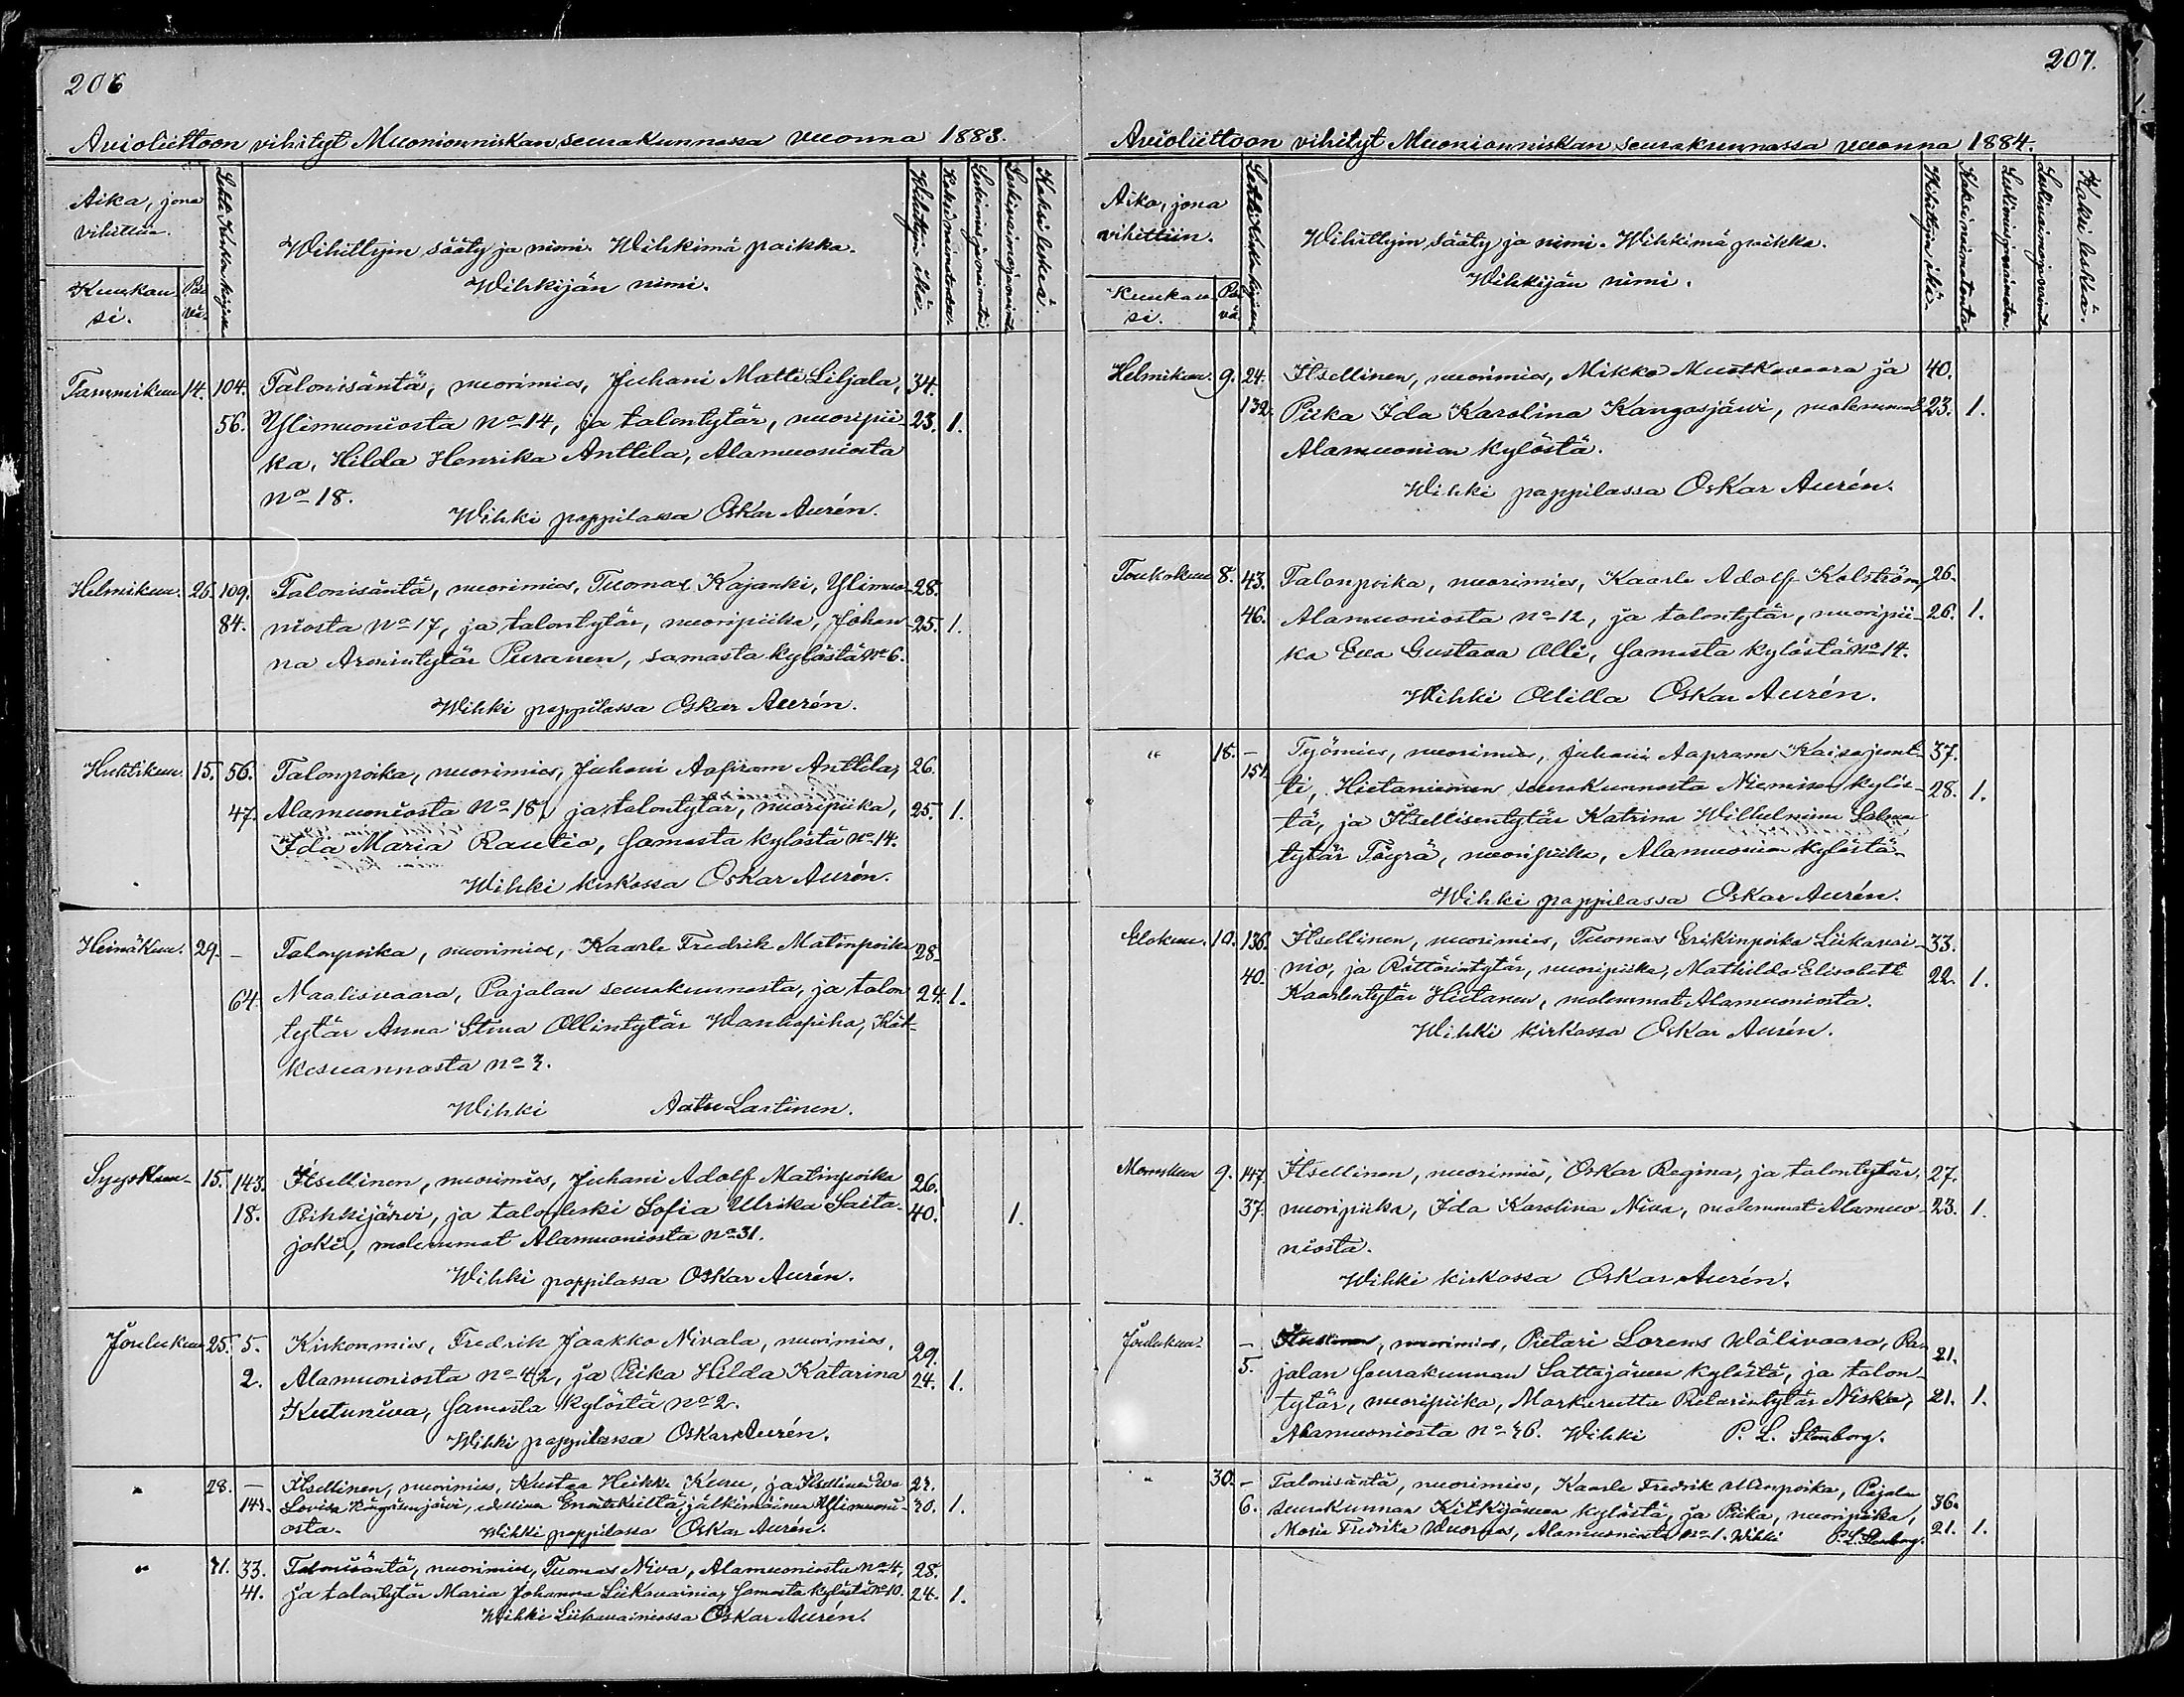 206
Avioliittoon vihityt Muonionniskan seurakunnassa vuonna 1883.
Aika, jona
vihittiin.
Kuukau-
si.
Päi-
vä.
Wihittyin sääty ja nimi. Wihkimä paikka.
Wihkijän nimi.
Wihittyin ikä.
Kaksi leskeä.
Tammikuu 14. 104. Talonisäntä, nuorimies, Juhani Matti Liljala, 34.
56. Ylimuoniosta No 14, ja talontytär, nuoripii- 23. 1.
ka, Hilda Henrika Anttila, Alamuoniosta
No 18.
Wihki pappilassa Oskar Aurén.
Helmikuu. 26. 109. Talonisäntä, nuorimies, Tuomas Kajanki, Ylimuo- 28.
84. niosta No 17, ja talontytär, nuoripiika, Johan- 25. 1.
na Aronintytär Puranen, samasta kylästä No 6.
Wihki pappilassa Oskar Aurén.
Huhtikuu. 15. 56. Talonpoika, nuorimies, Juhani Aapram Anttila, 26.
47. Alamuoniosta No 18, ja talontytär, nuoripiika, 25. 1.
Ida Maria Rautio, samasta kylästä No 14.
Wihki kirkossa Oskar Aurén.
Heinäkuu. 29. - Talonpoika, nuorimies, Kaarle Fredrik Matinpoika 28.
64. Naalisvaara, Pajalan seurakunnasta, ja talon 24. 1.
tytär Anna Stina Ollintytär Wanhapiha, Kät-
kesuannosta No 3.
Wihki Aatu Laitinen.
Syyskuu. 15. 143. Itsellinen, nuorimies, Juhani Adolf Matinpoika 26.
18. Poikkijärwi, ja talonleski Sofia Ulrika Saita- 40. 1.
joki, molemmat Alamuoniosta No 31.
Wihki pappilassa Oskar Aurén.
Joulukuu 25. 5. Kirkonmies, Fredrik Jaakko Nivala, nuorimies, 29.
2. Alamuoniosta No 42, ja Piika Hilda Katarina 24. 1.
Kutuniva, samasta kylästä No 2.
Wihki pappilassa Oskar Aurén.
" 28. - Itsellinen, nuorimies, Kustaa Heikki Keru, ja Itsellinen Eva
Lovisa järvi, edellinen Enontekiältä, jälkimäinen Ylimuoni- 30. 1.
osta. Wihki pappilassa Oskar Aurén.
" 31. 33. Talonisäntä, nuorimies, Tuomas Niva, Alamuoniosta No 4, 28.
41. ja talontytär Maria Johanna Liikavainio, samasta kylästä No 10. 24. 1.
Wihki Liikavainiossa Oskar Aurén.
207.
Avioliittoon vihityt Muonionniskan seurakunnassa vuonna 1884.
Aika, jona
vihittiin.
Kuukau-
si.
Päi-
vä.
Wihittyin sääty ja nimi. Wihkimä paikka.
Wihkijän nimi.
Wihittyin ikä.
Kaksi leskeä.
Helmikuu. 9. 24. Itsellinen, nuorimies, Mikko Mustkavaara ja 40.
132. Piika Ida Karolina Kangosjärvi, molemmat 23. 1.
Alamuonion kylästä.
Wihki pappilassa Oskar Aurén.
Toukokuu 8. 43. Talonpoika, nuorimies, Kaarle Adolf Kolström, 26.
46. Alamuoniosta No 12, ja talontytär, nuoripii- 26. 1.
ka Eva Gustava Olli, samasta kylästä No 14.
Wihki Ollilla Oskar Aurén.
" 18. - Työmies, nuorimies, Juhani Aapram Kaisajunt- 37.
151. ti, Hietaniemen seurakunnasta Niemisen kyläs- 28. 1.
tä, ja Itsellisentytär Katrina Wilhelmina
tytär Töyrä, nuoripiika, Alamuonion kylästä.
Wihki pappilassa Oskar Aurén.
Elokuu. 10. 136. Itsellinen, nuorimies, Tuomas Erikinpoika Liikavai- 33.
40. nio, ja Rättärintytär, nuoripiika, Mathilda Elisabett 22. 1.
Kaarlentytär Hietanen, molemmat Alamuoniosta.
Wihki kirkossa Oskar Aurén.
Marraskuu 9. 147. Itsellinen, nuorimies, Oskar Regina, ja talontytär, 27.
37. nuoripiika, Ida Karolina Niva, molemmat Alamuo- 23. 1.
niosta.
Wihki kirkossa Oskar Aurén.
Joulukuu. - Itsellinen, nuorimies, Pietari Lorens Wälivaara, Pa- 21.
5. jalan seurakunnan Sattajärven kylästä, ja talon-
tytär, nuoripiika, Markareetta Pietarintytär Niska, 21. 1.
Alamuoniosta No 36. Wihki P. L. Stenborg.
" 30. - Talonisäntä, nuorimies, Kaarle Fredrik Ollinpoika, Pajalan 36.
6. seurakunnan Kitkijärven kylästä, ja Piika, nuoripiika,
Maria Fredrika Vuorjas, Alamuoniosta No 1. Wihki P. L. Stenborg. 21. 1.